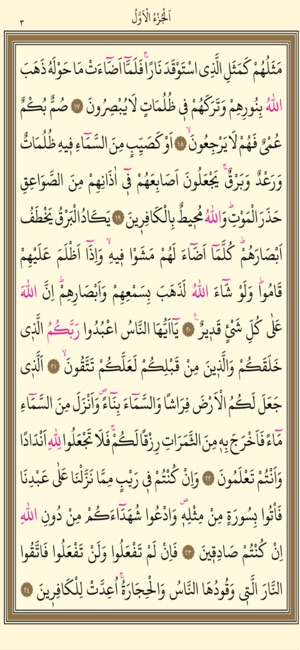 اَلْجُزْءُ الْاَوَّلُ
٣
مَثَلُهُمْ كَمَثَلِ الَّذِى اسْتَوْقَدَ نَارًاۚ فَلَمَّٓا اَضَٓاءَتْ مَا حَوْلَهُ ذَهَبَ
اللّٰهُ بِنُورِهِمْ وَتَرَكَهُمْ فٖى ظُلُمَاتٍ لَا يُبْصِرُونَ ﴿١٧﴾ صُمٌّ بُكْمٌ
عُمْىٌ فَهُمْ لَا يَرْجِعُونَۙ ﴿١٨﴾ اَوْ كَصَيِّبٍ مِنَ السَّمَٓاءِ فٖيهِ ظُلُمَاتٌ
وَرَعْدٌ وَبَرْقٌۚ يَجْعَلُونَ اَصَابِعَهُمْ فٖٓى اٰذَانِهِمْ مِنَ الصَّوَاعِقِ
حَذَرَ الْمَوْتِۜ وَاللّٰهُ مُحٖيطٌ بِالْكَافِرٖينَ ﴿١٩﴾ يَكَادُ الْبَرْقُ يَخْطَفُ
اَبْصَارَهُمْۜ كُلَّمَٓا اَضَٓاءَ لَهُمْ مَشَوْا فٖيهِۙ وَاِذَٓا اَظْلَمَ عَلَيْهِمْ
قَامُواۜ وَلَوْ شَٓاءَ اللّٰهُ لَذَهَبَ بِسَمْعِهِمْ وَاَبْصَارِهِمْۜ اِنَّ اللّٰهَ
عَلٰى كُلِّ شَىْءٍ قَدٖيرٌ۟ ﴿٢٠﴾ يَٓا اَيُّهَا النَّاسُ اعْبُدُوا رَبَّكُمُ الَّذٖى
خَلَقَكُمْ وَالَّذٖينَ مِنْ قَبْلِكُمْ لَعَلَّكُمْ تَتَّقُونَۙ ﴿٢١﴾ اَلَّذٖى
جَعَلَ لَكُمُ الْاَرْضَ فِرَاشًا وَالسَّمَٓاءَ بِنَٓاءًۖ وَاَنْزَلَ مِنَ السَّمَٓاءِ
مَٓاءً فَاَخْرَجَ بِهٖ مِنَ الثَّمَرَاتِ رِزْقًا لَكُمْۚ فَلَا تَجْعَلُوا لِلّٰهِ اَنْدَادًا
وَاَنْتُمْ تَعْلَمُونَ ﴿٢٢﴾ وَاِنْ كُنْتُمْ فٖى رَيْبٍ مِمَّا نَزَّلْنَا عَلٰى عَبْدِنَا
فَأْتُوا بِسُورَةٍ مِنْ مِثْلِهٖۖ وَادْعُوا شُهَدَٓاءَكُمْ مِنْ دُونِ اللّٰهِ
اِنْ كُنْتُمْ صَادِقٖينَ ﴿٢٣﴾ فَاِنْ لَمْ تَفْعَلُوا وَلَنْ تَفْعَلُوا فَاتَّقُوا
النَّارَ الَّتٖى وَقُودُهَا النَّاسُ وَالْحِجَارَةُۚ اُعِدَّتْ لِلْكَافِرٖينَ ﴿٢٤﴾